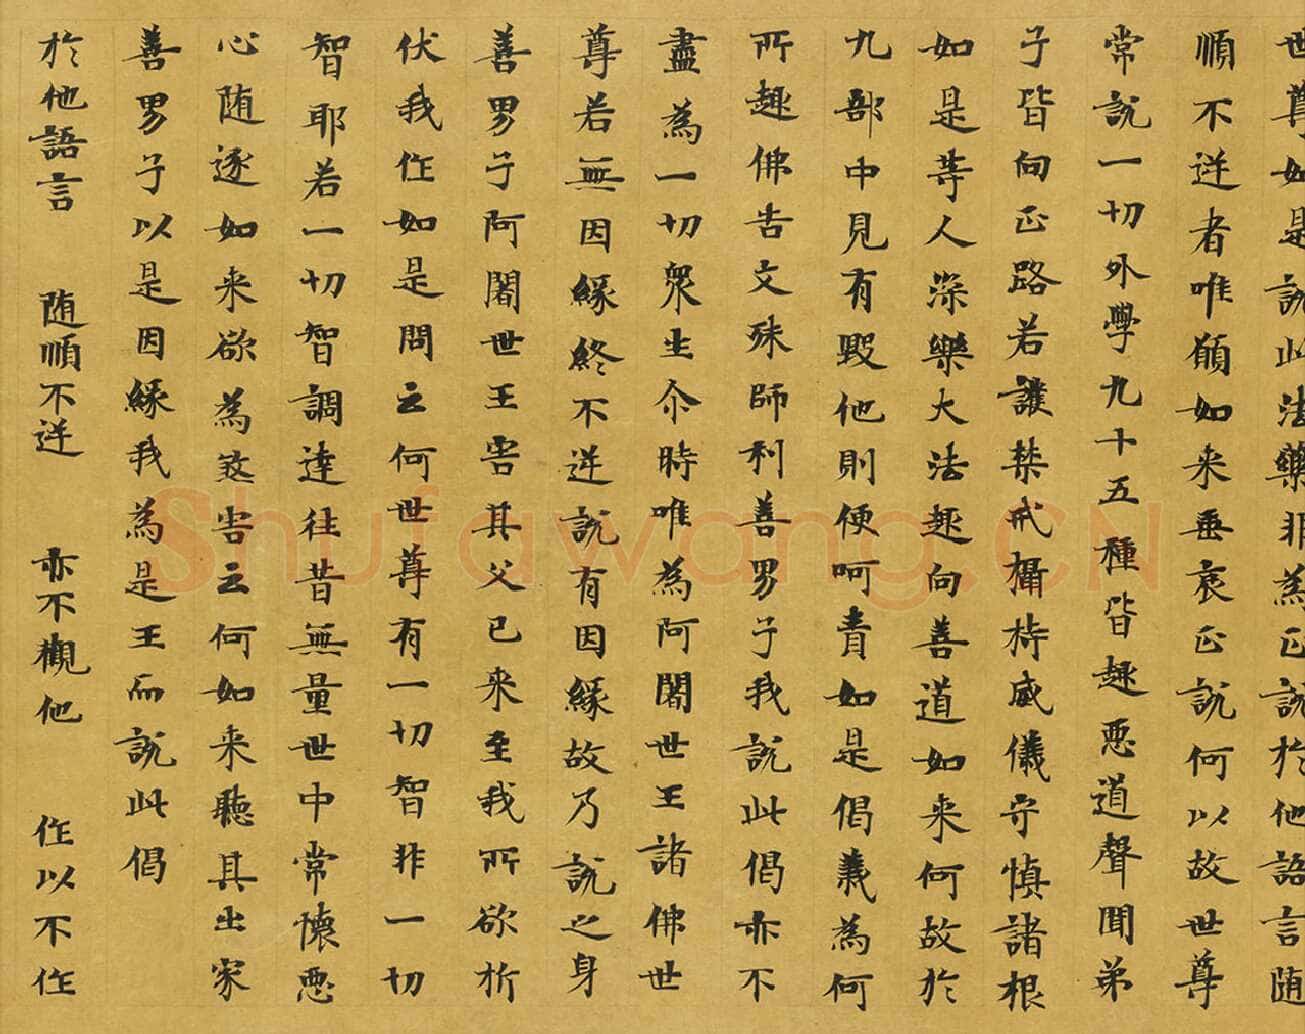 世尊如是說此法藥非為正說於他語言随
順不逆者唯願如来垂哀正說何以故世尊
常說一切外學九十五種皆趣惡道聲聞弟
子皆向正路若護禁戒攝持威儀守慎諸根
如是等人深樂大法趣向善道如来何故於
九部中見有毀他則便呵責如是偈義為何
所趣佛告文殊師利善男子我說此偈亦不
盡為一切眾生尒時唯為阿闍世王諸佛世
尊若無因緣終不逆說有因緣故乃說之身
善男子阿闍世王害其父已来至我所欲折
伏我作如是問云何世尊有一切智非一切
智耶若一切智調達往昔無量世中常懷惡
心随逐如来欲為煞害云何如来聽其出家
善男子以是因緣我為是王而說此偈
於他語言 随順不逆 亦不觀他 作以不作
Shufawang.CN